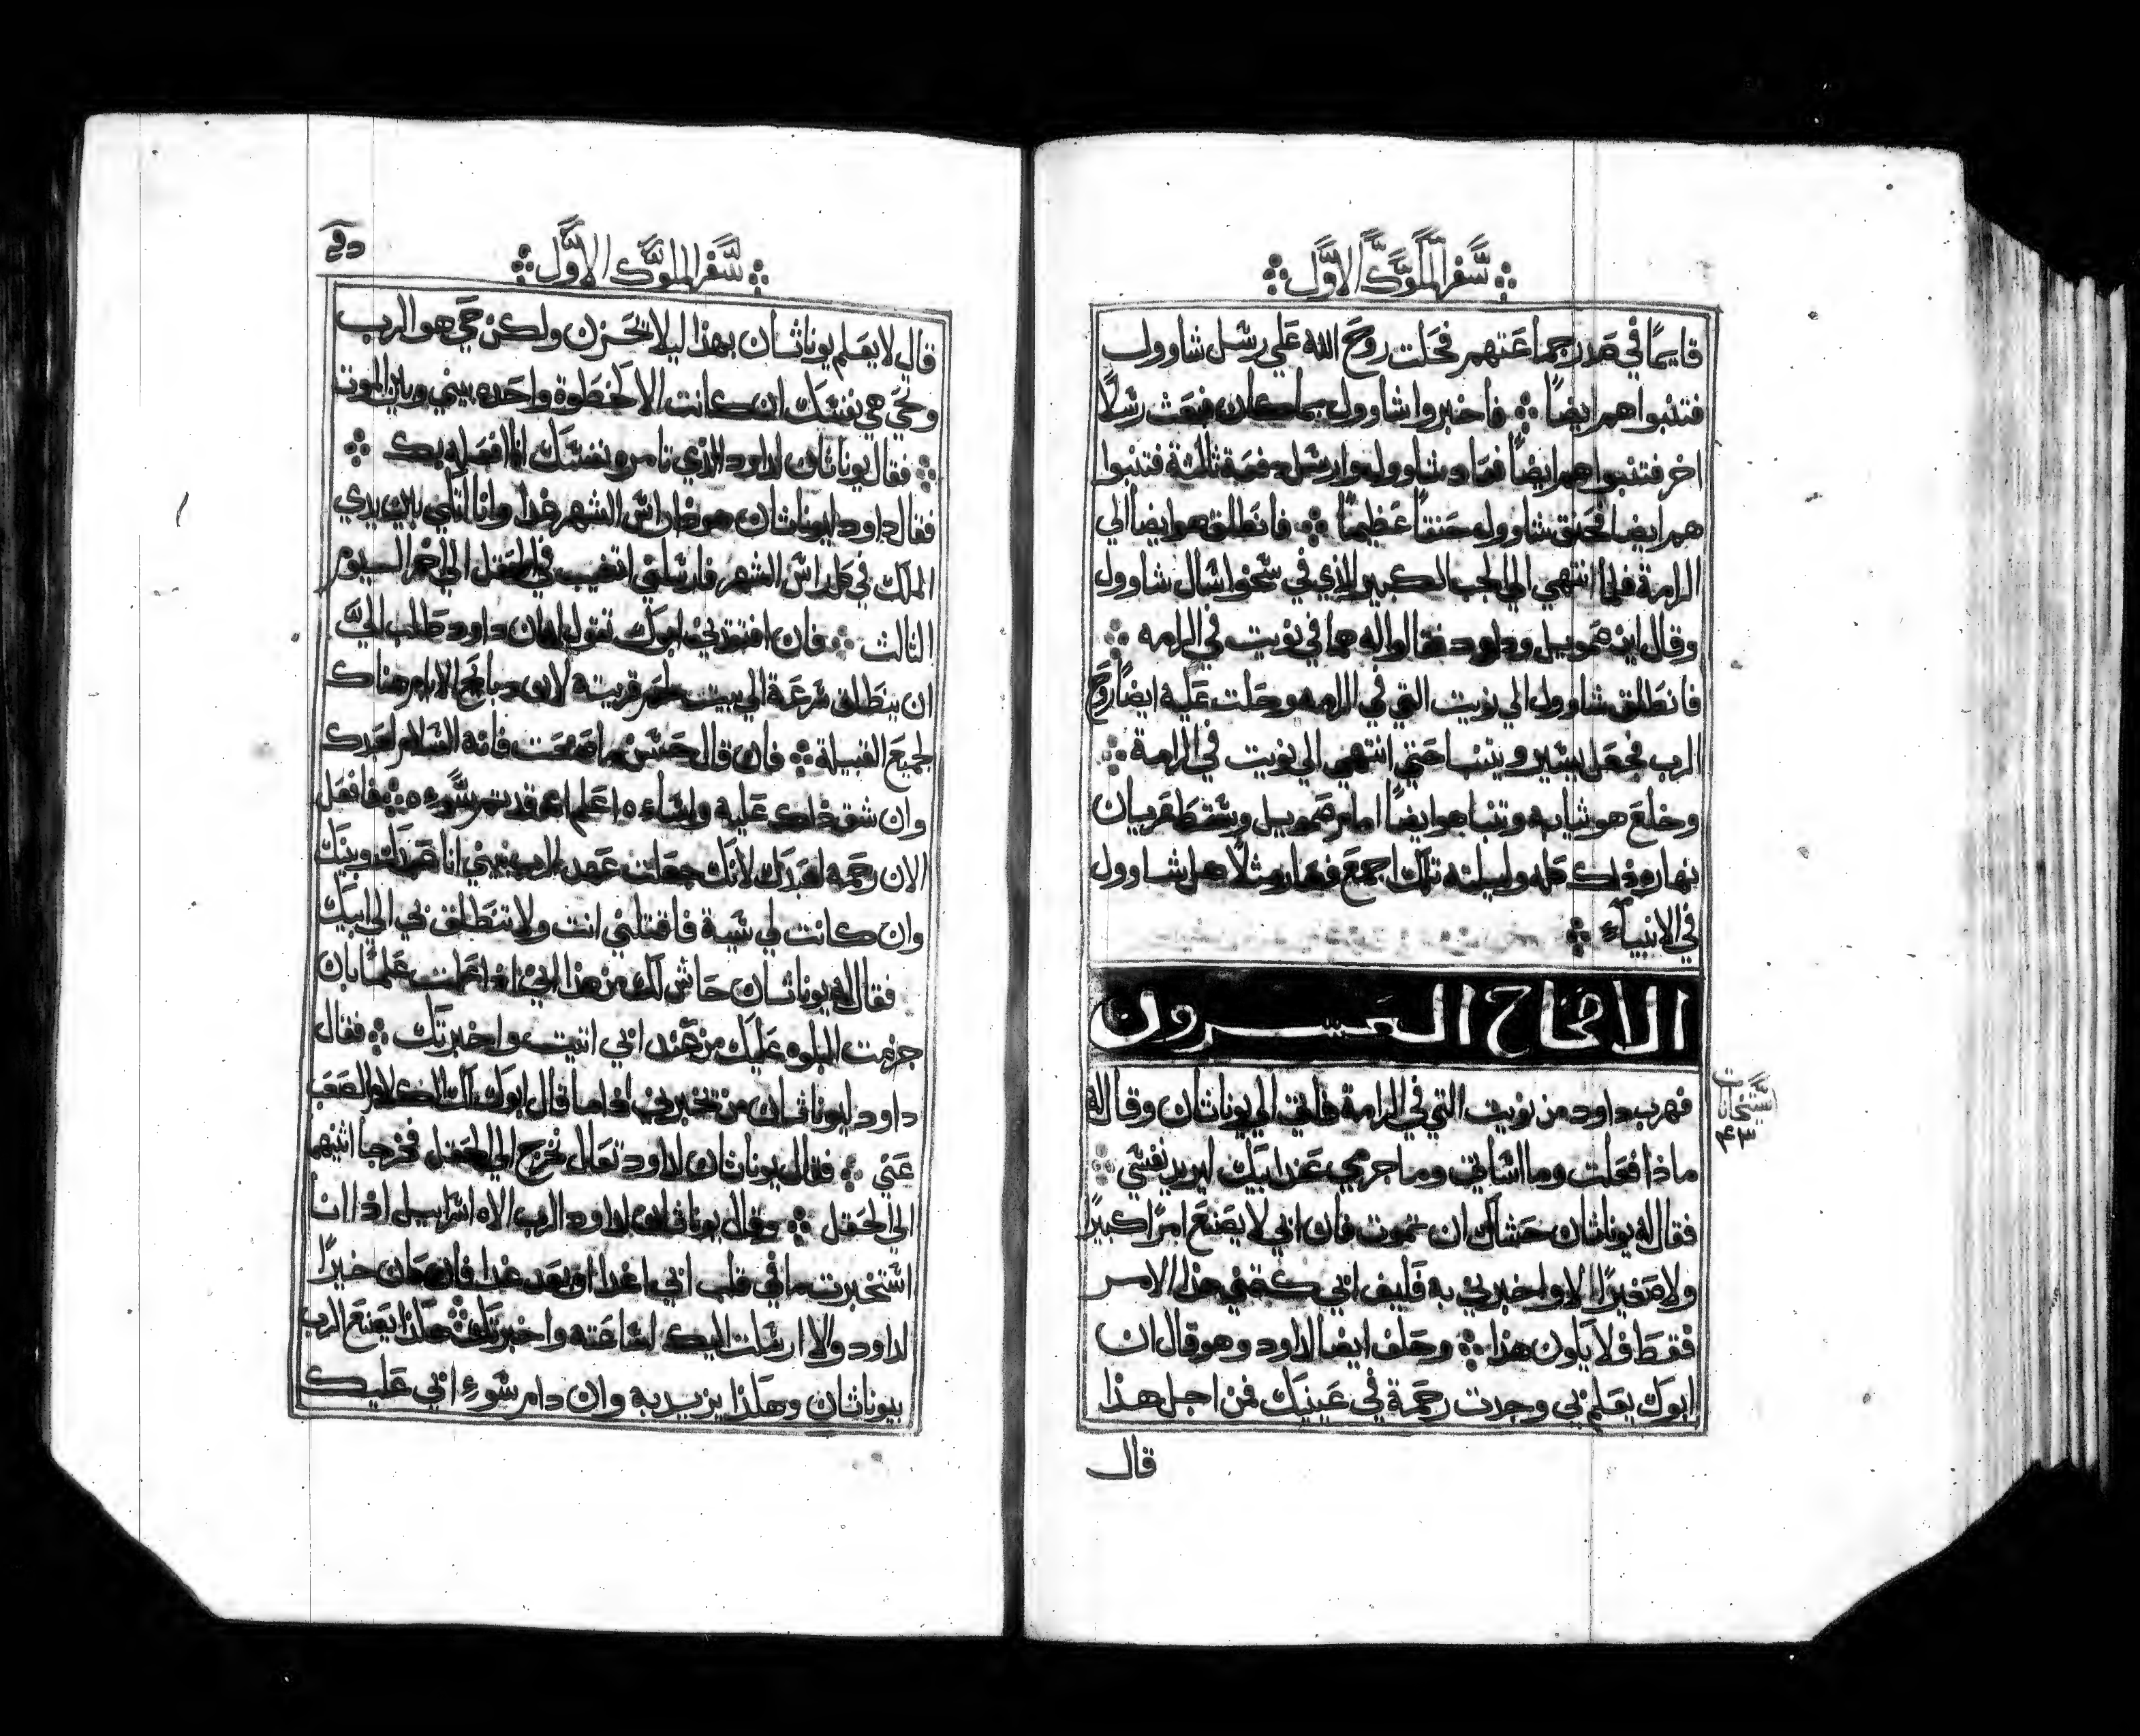 سفر الملوك الاول
قايمًا في صدر جماعتهم فحلت روح الله علي رسل شاوول
فتنبوا هم ايضًا فاخبروا شاوول بما كان فبعث رسلًا
اخر فتنبوا هم ايضًا فعاود شاوول وارسل دفعة ثالثة فتنبوا
هم ايضا فحنق شاوول حنقًا عظيمًا فانطلق هو ايضا الي
الرامة فلما انتهي الي الجب الكبير الذي في سخوا سال شاوول
وقال اين صمويل وداود فقالوا له هما في نويت في الرامه
فانطلق شاوول الي نويت التي في الرامه وحلت عليه ايضًا روح
الرب فجعل يسير ويتنبا حتي انتهي الي نويت في الرامة
وخلع هو ثيابه وتنبا هو ايضًا امام صمويل وسقط عريان
نهاره ذلك كله وليلته تلك اجمع فصار مثلًا هل شاوول
في الانبياء
الاصحاح العشرون
فهرب داود من نويت التي في الرامة فاتي الي يوناثان وقال له
ماذا فعلت وما اساتي وما جرمي عند ابيك ليريد نفسي
فقال له يوناثان حشاك ان تموت فان ابي لا يصنع امرًا كبيرًا
ولا صغيرًا الا واخبرني به فكيف ابي كتمني هذا الامر
فقط فلا يكون هذا وحلف ايضا لداود وهو قال ان
ابوك يعلم بي وجدت رحمة في عينيك فمن اجل هذا
قال
سفر الملوك الاول
قال لا يعلم يوناثان بهذا ليلا يحزن ولكن حي هو الرب
وحي هي نفسك ان كانت الا خطوة واحده بيني وبين الموت
فقال يوناثان لداود الذي تامر نفسك انا افعله بك
فقال داود ليوناثان هوذا راس الشهر غدا وانا اتكي بين يدي
الملك في راس الشهر فارسلني اتغيب في الحقل الي اخر اليوم
الثالث فان افتقدني ابوك تقول له ان داود طلب اليّ
ان ينطلق سرعة الي بيت لحم قريته لان ذبايح الايام هناك
لجميع القبيلة فان قال حسن ما صنعت فانه السلام لعبدك
وان شق ذلك عليه واساءه اعلم انه قد تم سوءه فافعل
الان رحمه لعبدك لانك جعلت عهد الرب بيني انا عبدك وبينك
وان كانت لي سية فاقتلني انت ولا تنطلق بي الي ابيك
فقال له يوناثان حاش لك من هذا اني اذا علمت علمًا بان
جزمت البلوه عليك من عند ابي اتيت واخبرتك فقال
داود ليوناثان من يخبرني اذا ما قال ابوك لك الكلام الصعب
عني فقال يوناثان لداود تعال نخرج الي الحقل فخرجا اثنيهما
الي الحقل وقال يوناثان لداود الرب الاه اسراييل اذا انا
استخبرت ما في قلب ابي غدا او بعد غدا فان كان خيرًا
لداود والا ارسلت اليك لساعته واخبرتك هكذا يصنع الرب
بيوناثان وهكذا يزيد به وان دام سوء ابي عليك